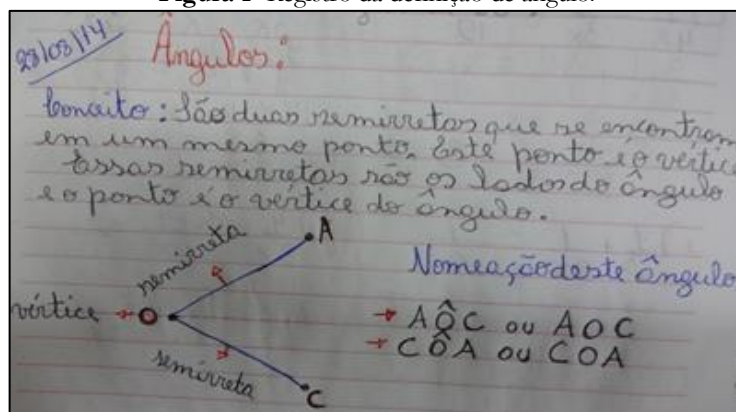 Figura 1 Registro da definição de ângulo.
28/03/14
Ângulos:
Conceito: São duas semirretas que se encontram
em um mesmo ponto. Este ponto é o vértice
Essas semirretas são os lados do ângulo
e o ponto é o vértice do ângulo.
A
semirreta
Nomeação deste ângulo
vértice → O
→ AÔC ou AOC
→ CÔA ou COA
semirreta
C